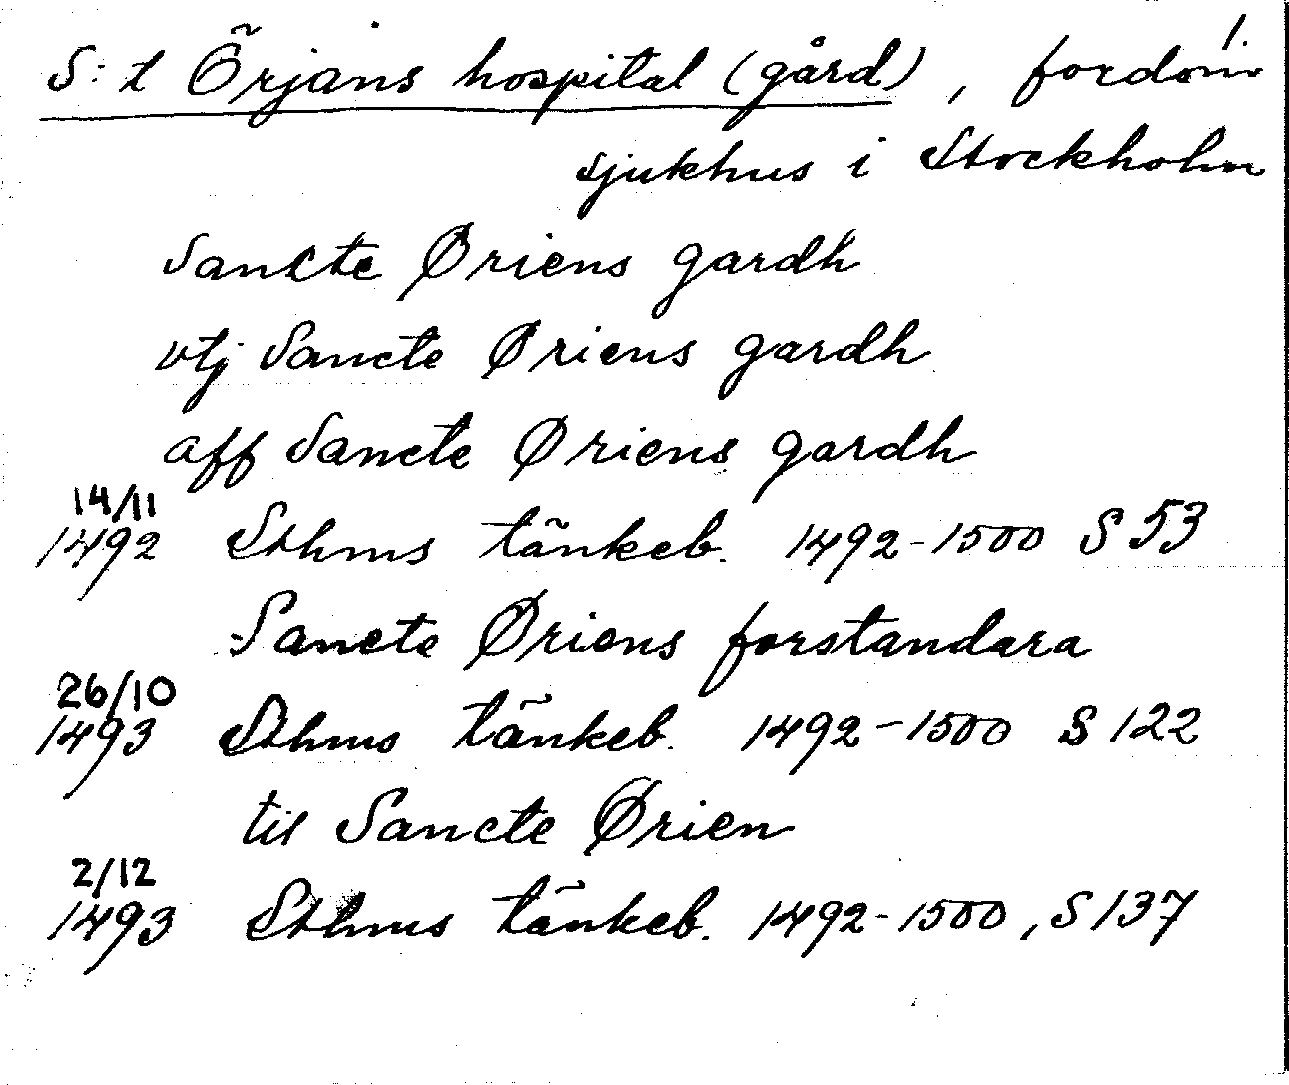 1.
S:t Örjans hospital (gård), fordom
sjukhus i Stockholm
Sancte Øriens gardh
vtj Sancte Øriens gardh
aff Sancte Øriens gardh
14/11
1492 Sthms tänkeb. 1492-1500 S 53
Sancte Øriens forstandara
26/10
1493 Sthms tänkeb. 1492-1500 S 122
til Sancte Ørien
2/12
1493 Sthms tänkeb. 1492-1500, S 137